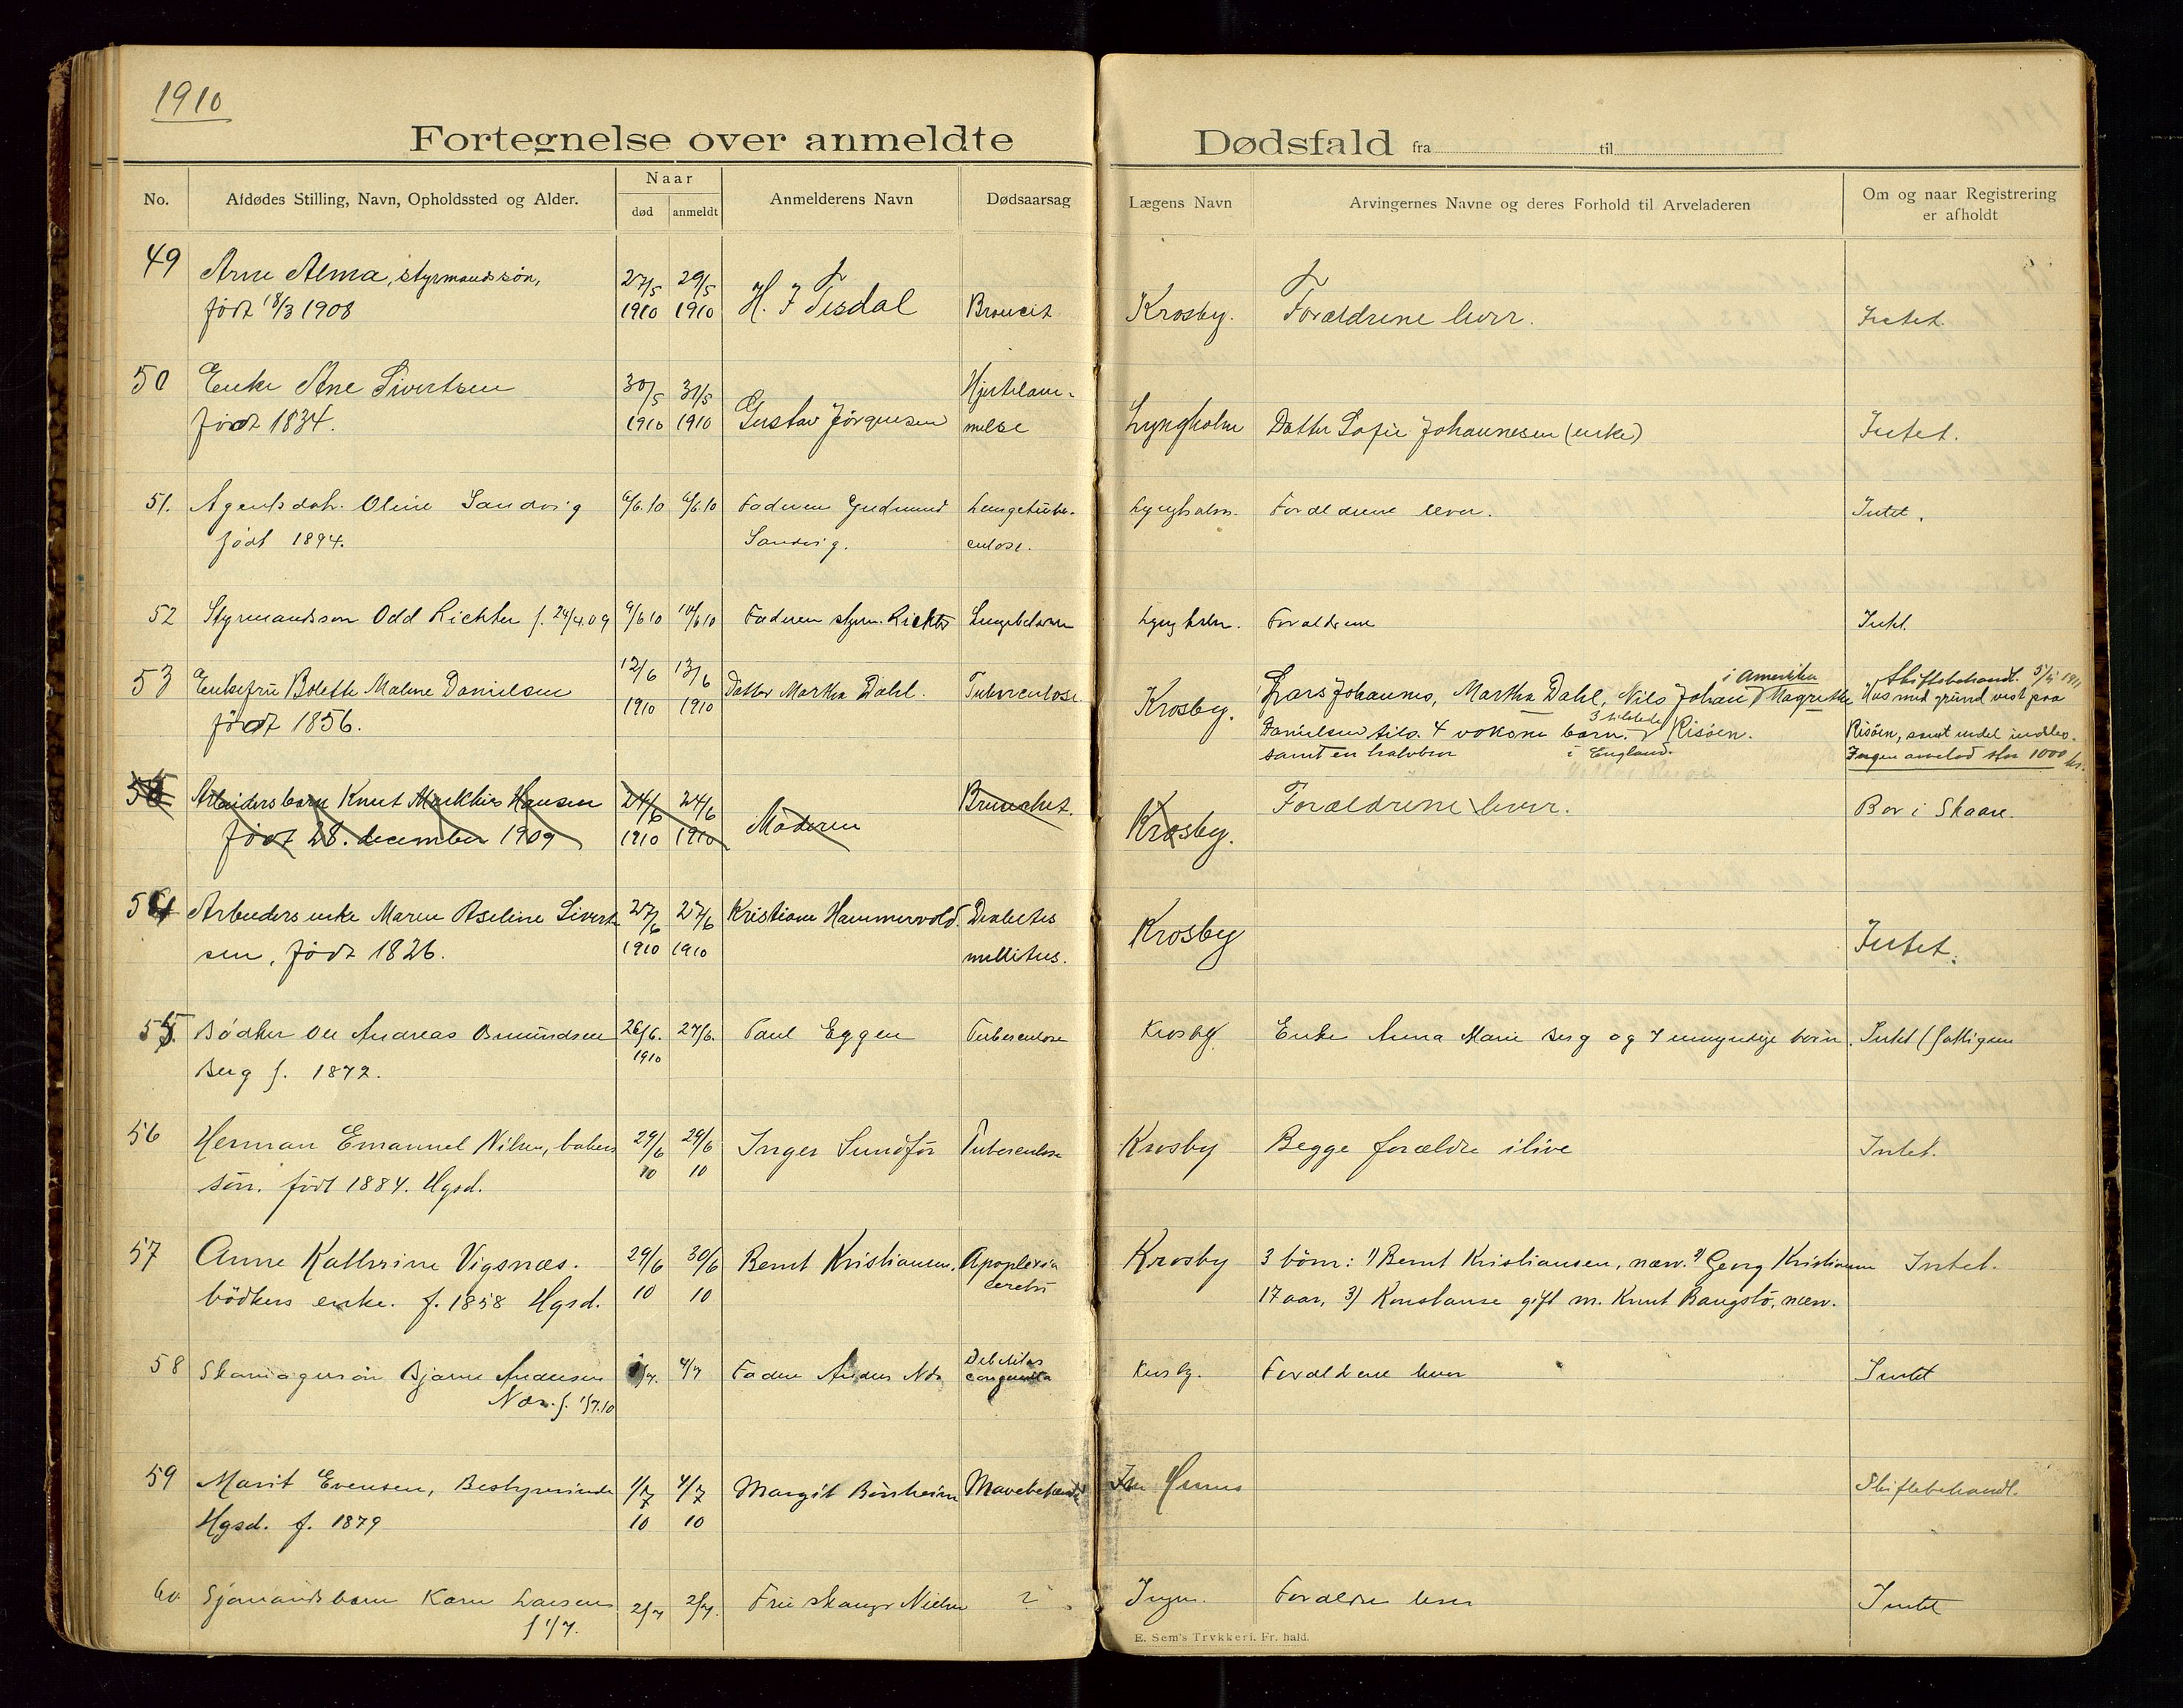 1910
Fortegnelse over anmeldte Dødsfald fra til
No. Afdødes Stilling, Navn, Opholdssted og Alder. Naar død anmeldt Anmelderens Navn Dødsaarsag Lægens Navn Arvingernes Navne og deres Forhold til Arveladeren Om og naar Registrering er afholdt
49 Arne Alma, styrmandssøn, 27/5 29/5 H. F Tisdal
født 18/3 1908 1910 1910 Broncit Krosby. Forældrene lever. Intet.
50 Enke Ane Sivertsen 30/5 31/5 Hjertelam-
født 1834. 1910 1910 Gustav Jörgensen melse Lyngholm Datter Sofie Johannesen (enke) Intet.
51. Agentsdatr. Oline Sandvig 6/6.10 6/6.10 Faderen Gudmund Lungetuber- Lyngholm. Forældrene lever. Intet.
født 1894. Sandvig. culose.
52 Styrmandssøn Odd Richter f. 24/4.09 9/6 10 10/6 10 Faderen styrm. Richter Lyngholm. Forældrene Intet.
i Amerika Skiftebehandl.
53 Enkefru Bolette Maline Danielsen 12/6 13/6 Datter Martha Dahl. Tuberculose. Krosby. Lars Johannes, Martha Dahl, Nils Johan Magrethe Hus med grund vest paa
født 1856. 1910 1910 Danielsen tils. 4 voksne børn. 3 tilstede Risöen. Risöen, samt endel indbo.
samt en halvbror i England. Ingen arvelod stor 1000 kr.
Arbeidersbarn Knut Hansen 24/6 24/6 Bronchit. Forældrene lever. Bor i Skaare.
født 28. december 1909 1910 1910 Moderen Krosby.
54 Arbeidersenke Maren Aseline Sivert 27/6 27/6 Kristiane Hammervold. Diabetes Krosby
sen, født 1826. 1910 1910 mellitus. Intet.
55. Bødker Ole Andreas Osmundsen 26/6. 27/6. Paul Eggen Tuberculose Krosby Enke Anna Marie Berg og 7 umyndige børn. Intet (fattigum
Berg f. 1872. 1910
56 Herman Emanuel Nilsen, bakers 29/6 29/6 Inger Sundför Tuberculose Krosby Begge forældre ilive Intet.
søn. født 1884. Hgsd. 10 10
57 Anne Kathrine Vigsnæs. 29/6 30/6 Bernt Kristiansen. Apoplexia Krosby 3 börn: 1) Bernt Kristiansen, nærv. 2) Georg Kristiansen Intet.
bödkers enke. f. 1858 Hgsd. 10 10 cerebri 17 aar, 3) Konstanse gift m. Knut Baugstö, nærv.
58 Bjarne Andersen 4/7 Fader Anders Debilitas Krosby. Forældrene lever Intet
f. 1/7.10 congenita
59 Marit Evensen, Bestyrerinde 1/7 4/7 Margit Börsheim Skiftebehandl.
Hgsd. f. 1879 10 10
60. Sjømandsbarn Karn Larsen 2/7 2/7. Fru Nielsen ? Ingen. Forældre lever Intet
f 1/7.
E. Sem's Trykkeri. Fr. hald.